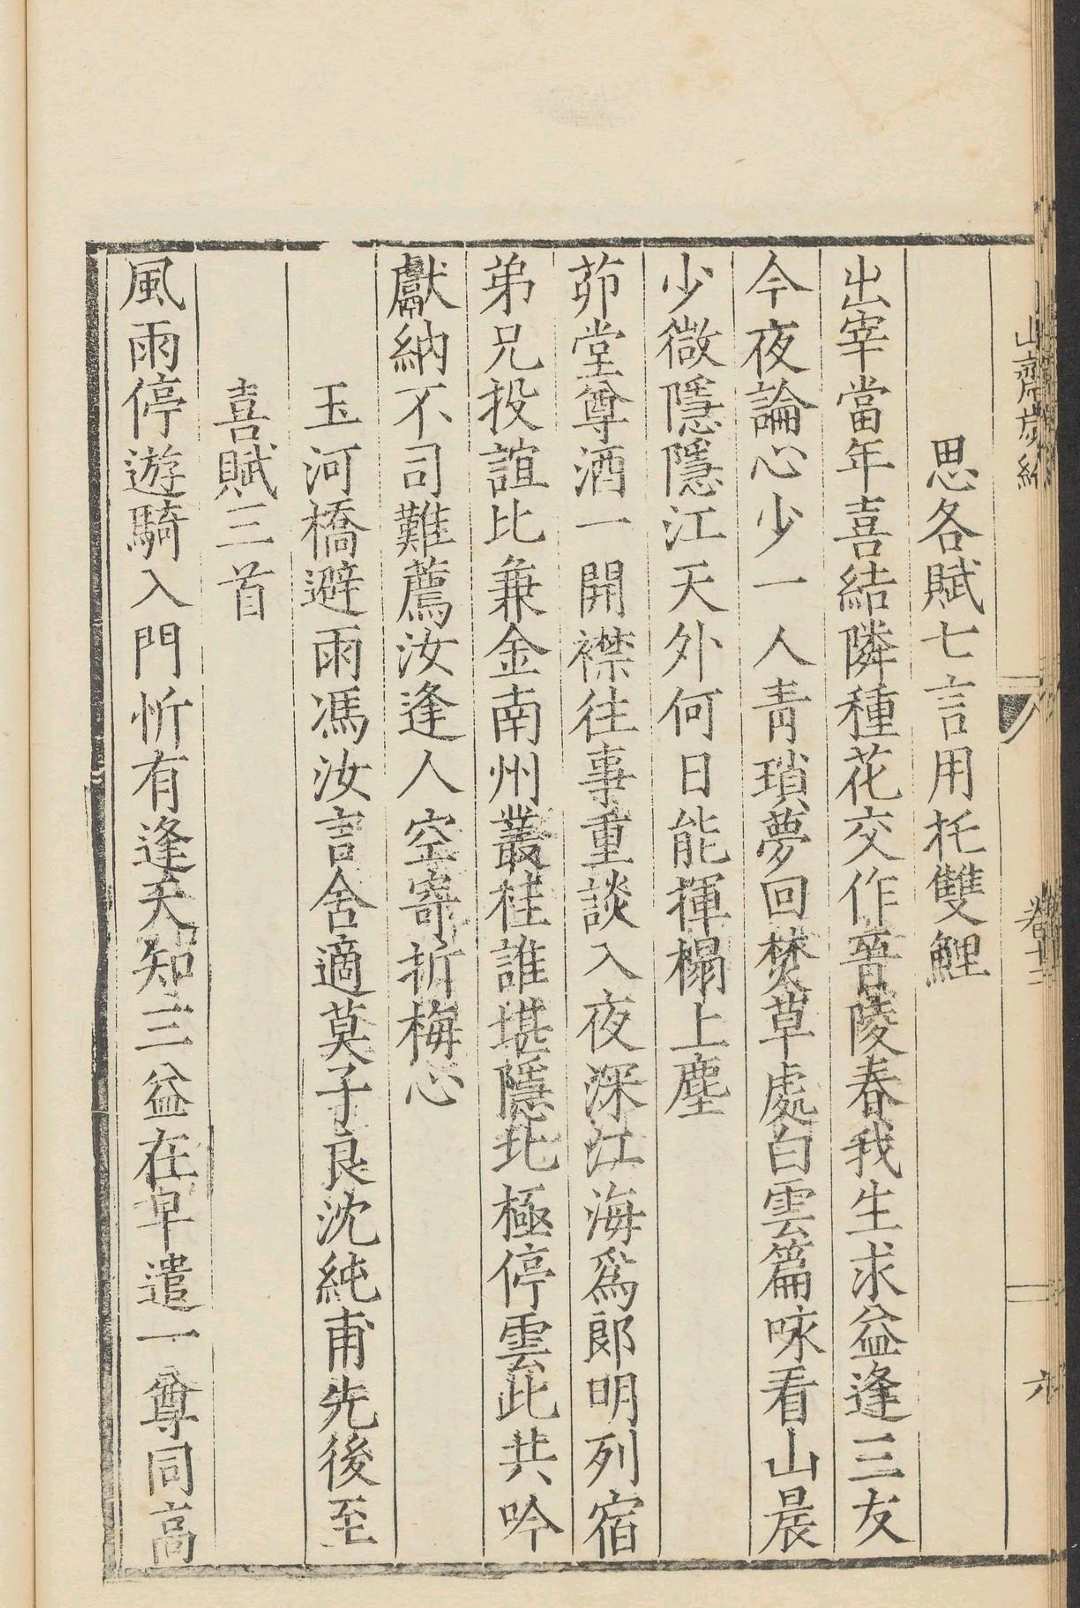 思各賦七言用托雙鯉
出宰當年喜結隣種花交作晉陵春我生求益逢三友
今夜論心少一人青瑣夢回焚草處白雲篇咏看山晨
少微隱隱江天外何日能揮榻上塵
茆堂尊酒一開襟往事重談入夜深江海爲郎明列宿
弟兄投誼比兼金南州叢桂誰堪隱北極停雲此共吟
獻納不司難薦汝逢人空寄折梅心
玉河橋避雨馮汝言舍適莫子良沈純甫先後至
喜賦三首
風雨停遊騎入門忻有逢天知三益在早遣一尊同高